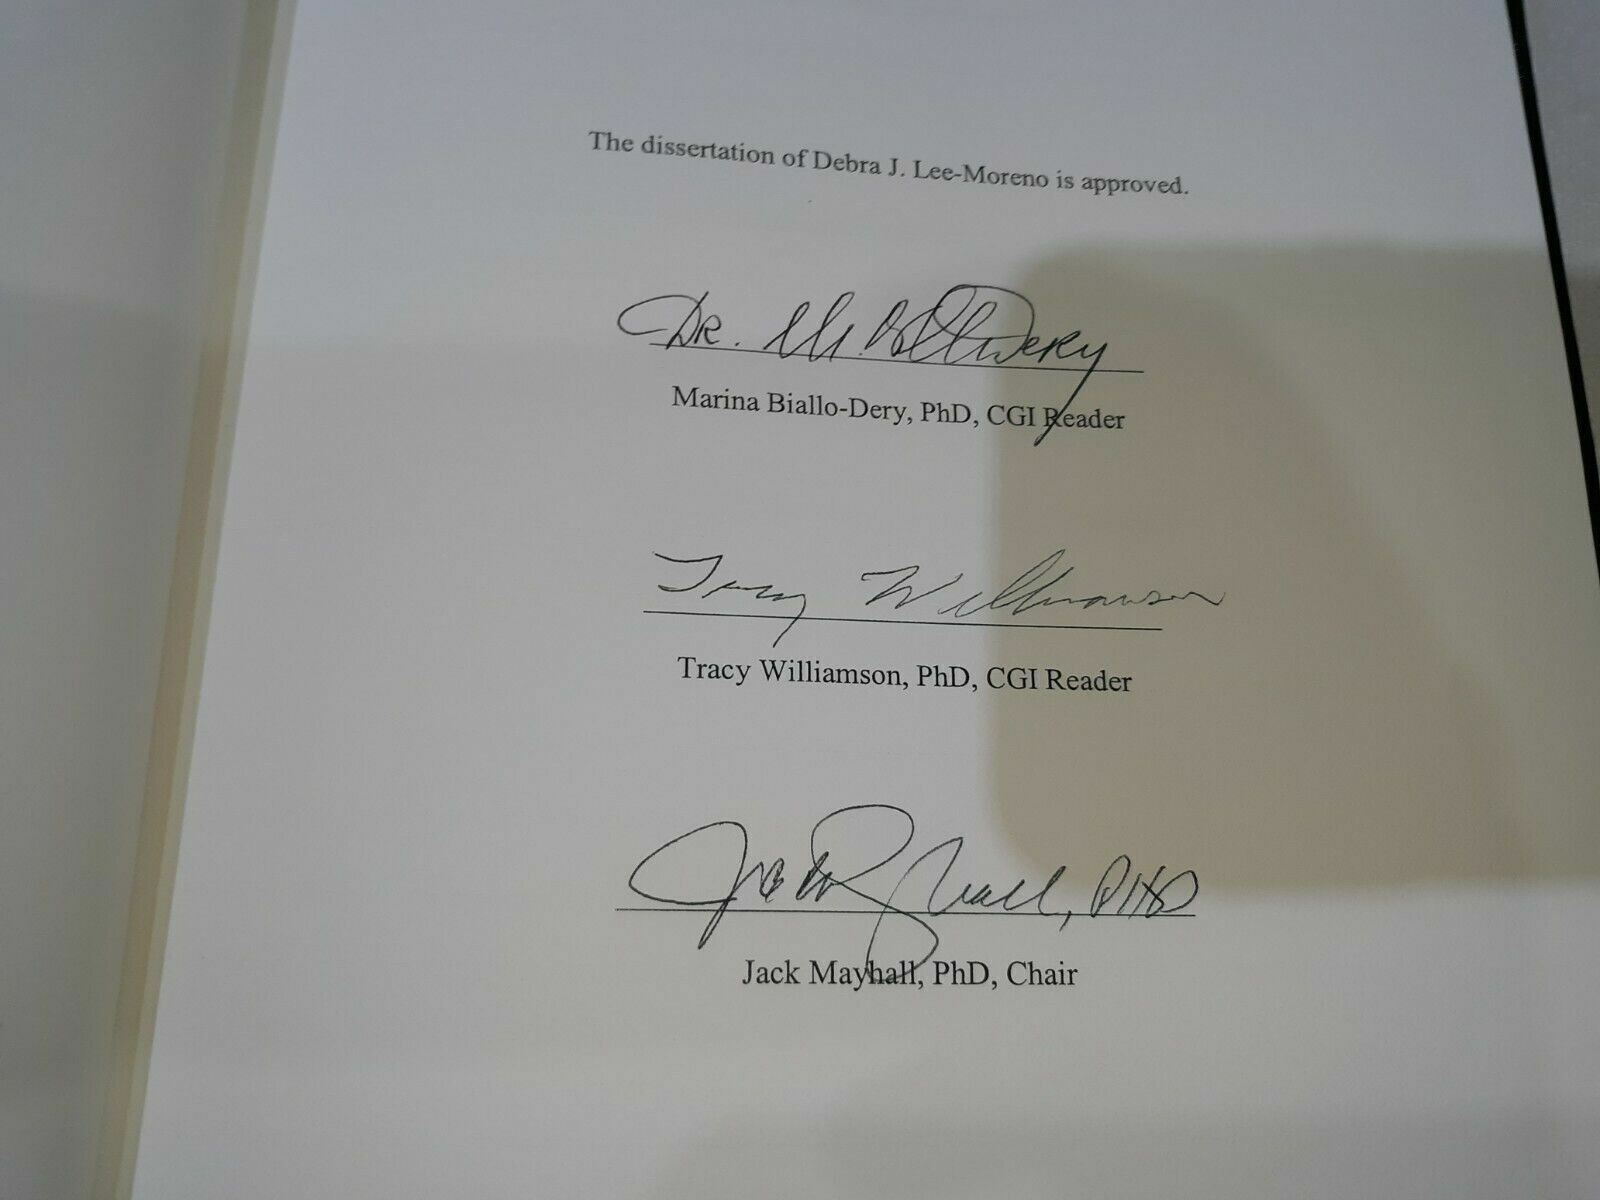 The dissertation of Debra J. Lee-Moreno is approved.
Dr. M. Biallo-Dery
Marina Biallo-Dery, PhD, CGI Reader
Tracy Williamson
Tracy Williamson, PhD, CGI Reader
Jack Mayhall, PHD
Jack Mayhall, PhD, Chair